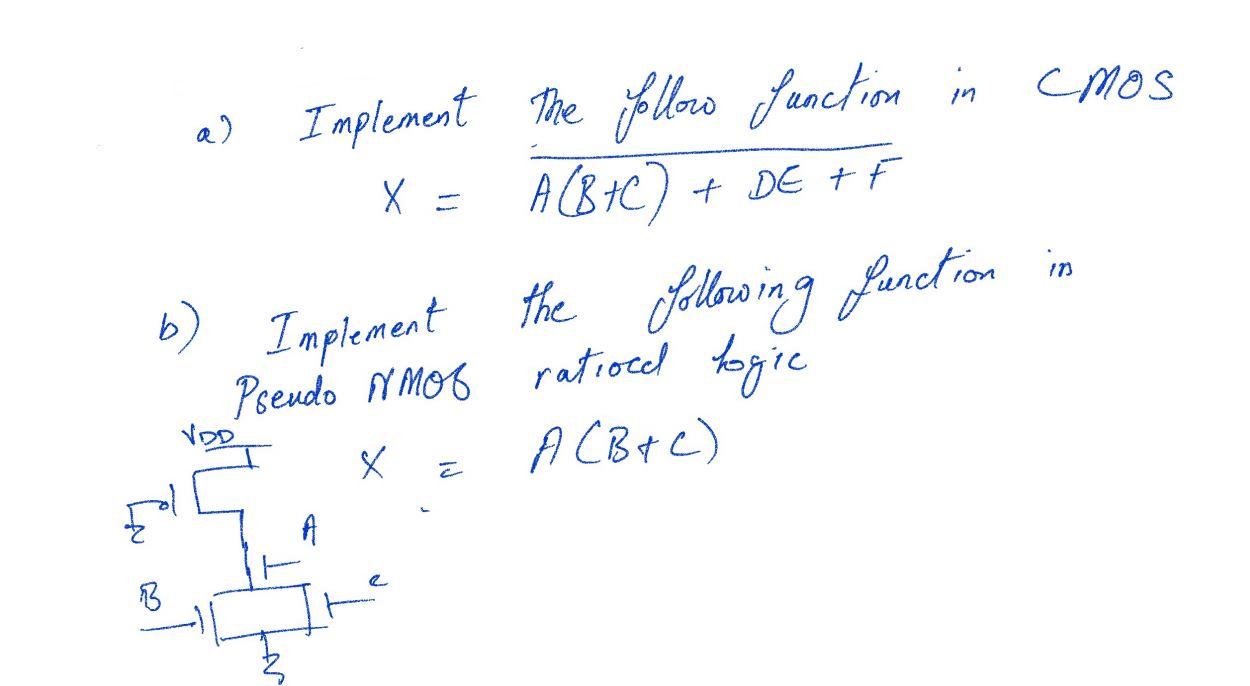 a) Implement the follow function in CMOS
X = \overline{A(B+C) + DE + F}
b) Implement the following function in
Pseudo NMOS ratioed logic
X = A(B+C)
VDD
A
B
c